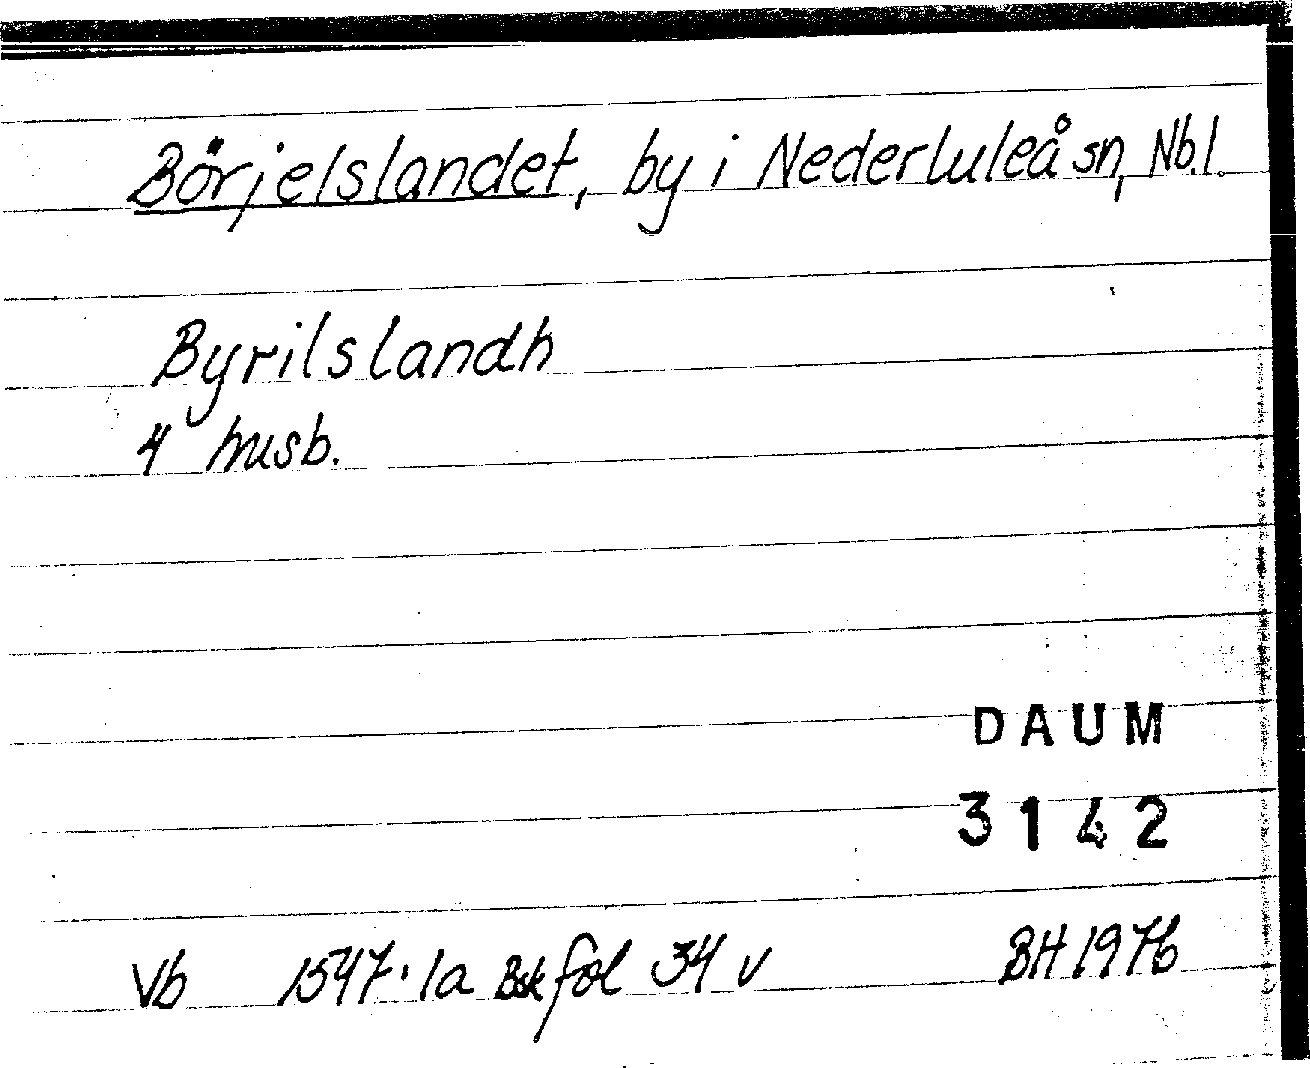 Börjelslandet, by i Nederluleå sn, Nb.l.
Byrilslandh
4 husb.
DAUM
3142
Vb 1547:1a Bsk fol 34 v BH 1976